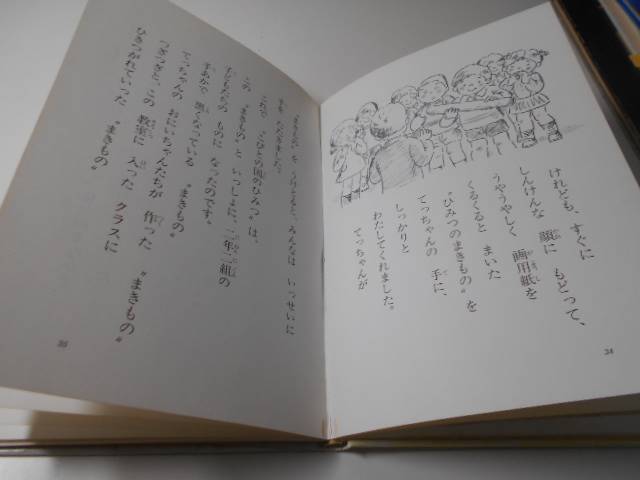 けれども、すぐに
しんけんな 顔に もどって、
うやうやしく 画用紙を
くるくると まいた
〝ひみつのまきもの〟を
てっちゃんの 手に、
しっかりと
わたしてくれました。
てっちゃんが
34
〝まきもの〟を うけとると、みんなは いっせいに
これで 〝こびとの国のひみつ〟は、
この 〝まきもの〟と いっしょに、二年二組の
子どもたちの ものに なったのです。
すあかで 黒くなっている 〝まきもの〟
てっちゃんの おにいちゃんたちが 作った 〝まきもの〟
つぎつぎと、この 教室に 入った クラスに
ひきつがれていった 〝まきもの〟